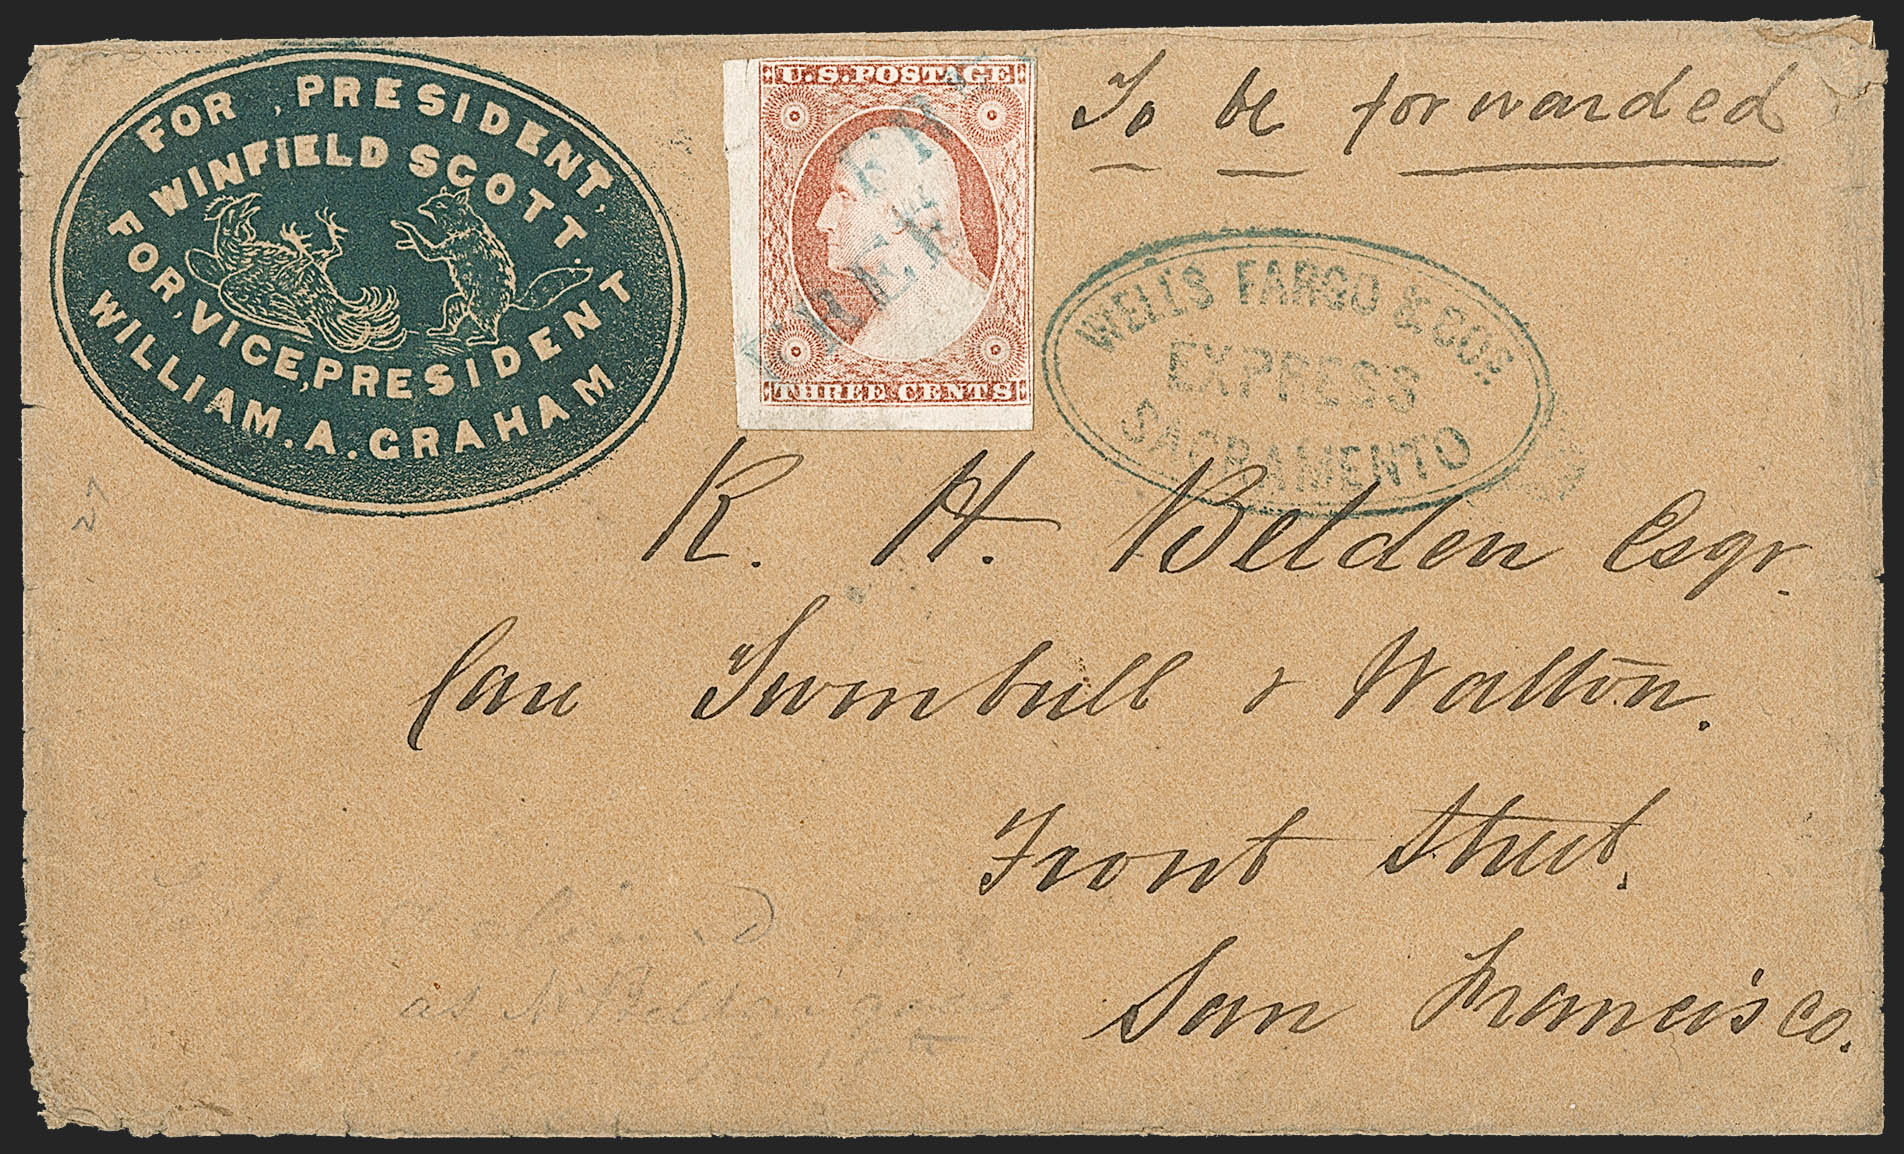 FOR, PRESIDENT,
WINFIELD SCOTT.
FOR, VICE, PRESIDENT
WILLIAM. A. GRAHAM
U.S. POSTAGE
THREE CENTS
To be forwarded
WELLS FARGO & COS.
EXPRESS
SACRAMENTO
R. H. Belden Esqr.
Care Turnbull & Walton.
Front Street.
San Francisco.
as Mr Belden